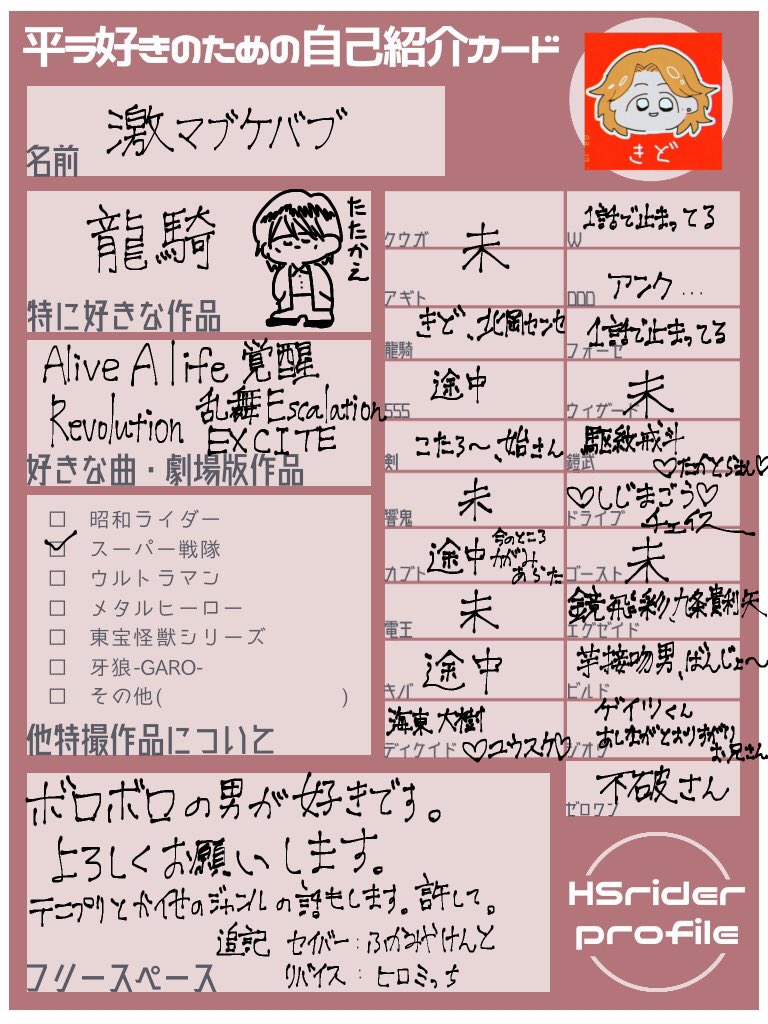 平ラ好きのための自己紹介カード
きど
激マブケバブ
名前
龍騎
たたかえ
特に好きな作品
Alive A life 覚醒
Revolution 乱舞Escalation
EXCITE
好きな曲・劇場版作品
昭和ライダー
スーパー戦隊
ウルトラマン
メタルヒーロー
東宝怪獣シリーズ
牙狼-GARO-
その他( )
他特撮作品について
クウガ
未
アギト
きど、北岡センセ
龍騎
途中
555
こたろ〜、始さん
剣
未
響鬼
途中 今のところ
かがみ
あらた
カブト
未
電王
途中
キバ
海東大樹
ディケイド ♡ユウスケ♡
1話で止まってる
W
アンク…
OOO
1話で止まってる
フォーゼ
未
ウィザード
駆紋戒斗
鎧武 ♡たかとらさん♡
♡しじまごう♡
ドライブ チェイス
未
ゴースト
鏡飛彩、九条貴利矢
エグゼイド
芋接吻男、ばんじょ〜
ビルド
ゲイツくん
あしながとおりすがり
お兄さん
ジオウ
不破さん
ゼロワン
ボロボロの男が好きです。
よろしくお願いします。
テニプリとか他のジャンルの話もします。許して。
追記 セイバー:ふかみやけんと
リバイス:ヒロミっち
フリースペース
HSrider
profile